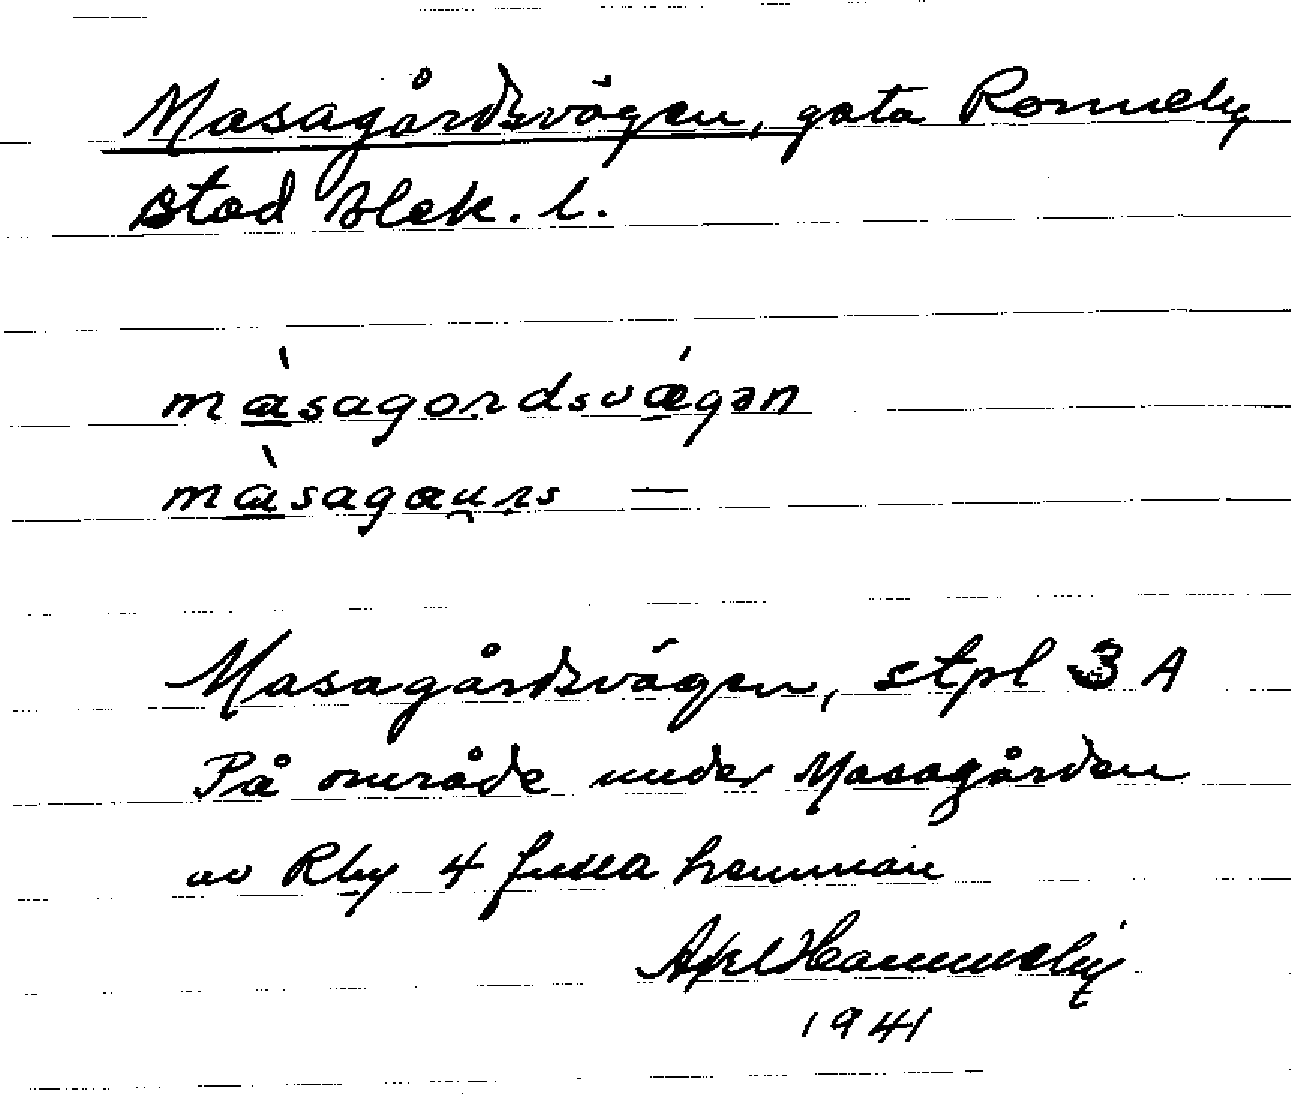 Masagårdsvägen, gata Ronneby
stad Blek. l.
mɑ̀sagordsvǽgən
mɑ̀sagau̯rs —
Masagårdsvägen, stpl 3 A
På område under Masagården
av Rby 4 fulla hemman
Axel Hammelig
1941